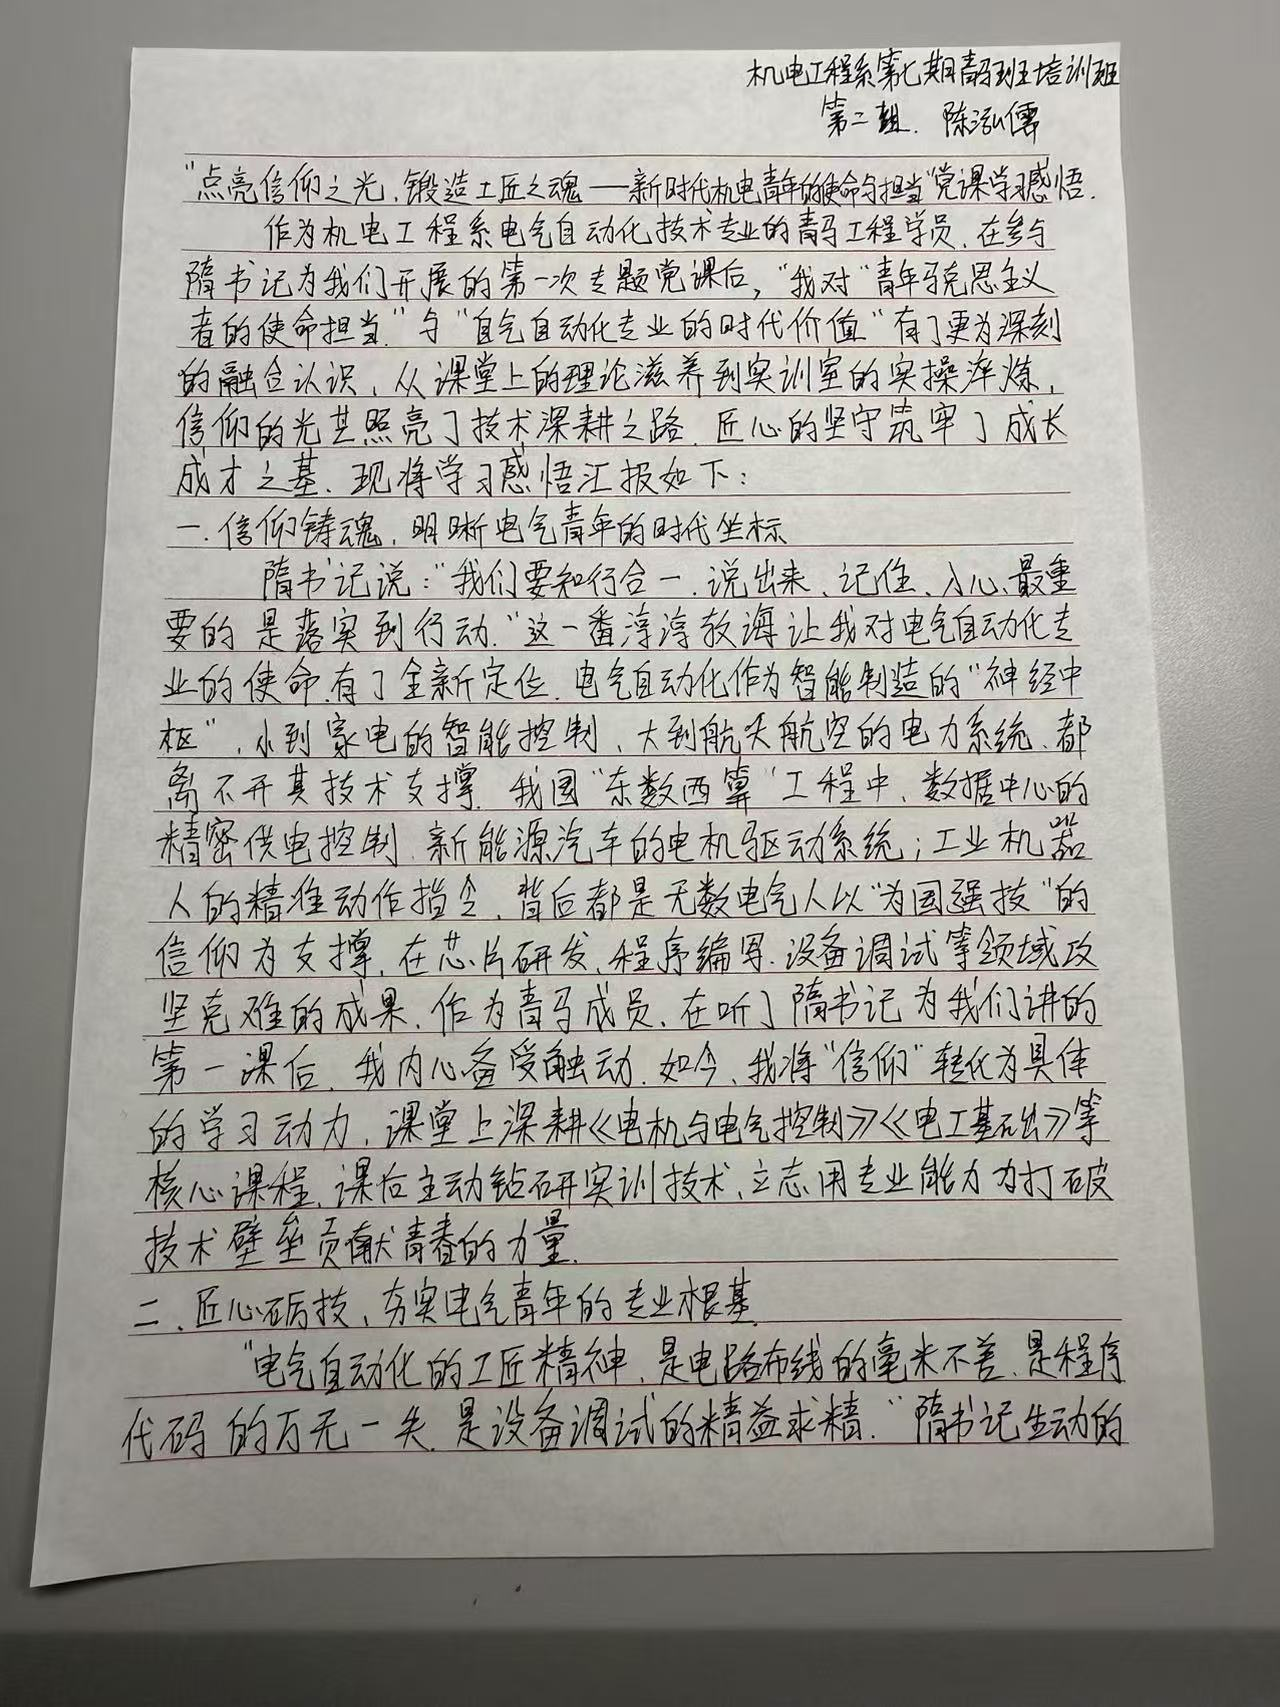 机电工程系第七期青马班培训班
第二组. 陈泓儒
"点亮信仰之光,锻造工匠之魂——新时代机电青年的使命与担当"党课学习感悟.
作为机电工程系电气自动化技术专业的青马工程学员,在参与
隋书记为我们开展的第一次专题党课后,"我对"青年马克思主义
者的使命担当"与"自气自动化专业的时代价值"有了更为深刻
的融合认识,从课堂上的理论滋养到实训室的实操淬炼,
信仰的光芒照亮了技术深耕之路.匠心的坚守筑牢了成长
成才之基.现将学习感悟汇报如下:
一.信仰铸魂,明晰电气青年的时代坐标
隋书记说:"我们要知行合一,说出来、记住、入心、最重
要的是落实到行动."这一番淳淳教诲让我对电气自动化专
业的使命有了全新定位.电气自动化作为智能制造的"神经中
枢",小到家电的智能控制、大到航天航空的电力系统,都
离不开其技术支撑.我国"东数西算"工程中、数据中心的
精密供电控制.新能源汽车的电机驱动系统;工业机器
人的精准动作指令,背后都是无数电气人以"为国强技"的
信仰为支撑,在芯片研发、程序编写.设备调试等领域攻
坚克难的成果.作为青马成员,在听了隋书记为我们讲的
第一课后,我内心备受触动.如今、我将"信仰"转化为具体
的学习动力,课堂上深耕《电机与电气控制》《电工基础》等
核心课程,课后主动钻研实训技术、立志用专业能力力打破
技术壁垒贡献青春的力量.
二.匠心砺技,夯实电气青年的专业根基.
"电气自动化的工匠精神,是电路布线的毫米不差,是程序
代码的万无一失.是设备调试的精益求精."隋书记生动的